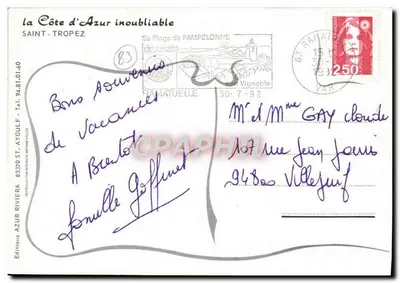 la Côte d'Azur inoubliable
SAINT - TROPEZ
Sa Plage de PAMPELONNE
Vignoble
RAMATUELLE 30-7-92
83 RAMATUELLE
VAR
2,50
83
Bons souvenirs
de vacances
A Bientôt
famille Goffinet
Mr et Mme GAY Claude
107 rue Jean Jaurès
94800 Villejuif
Editions AZUR RIVIERA 83370 ST. AYGULF - Tel. 94.81.01.60